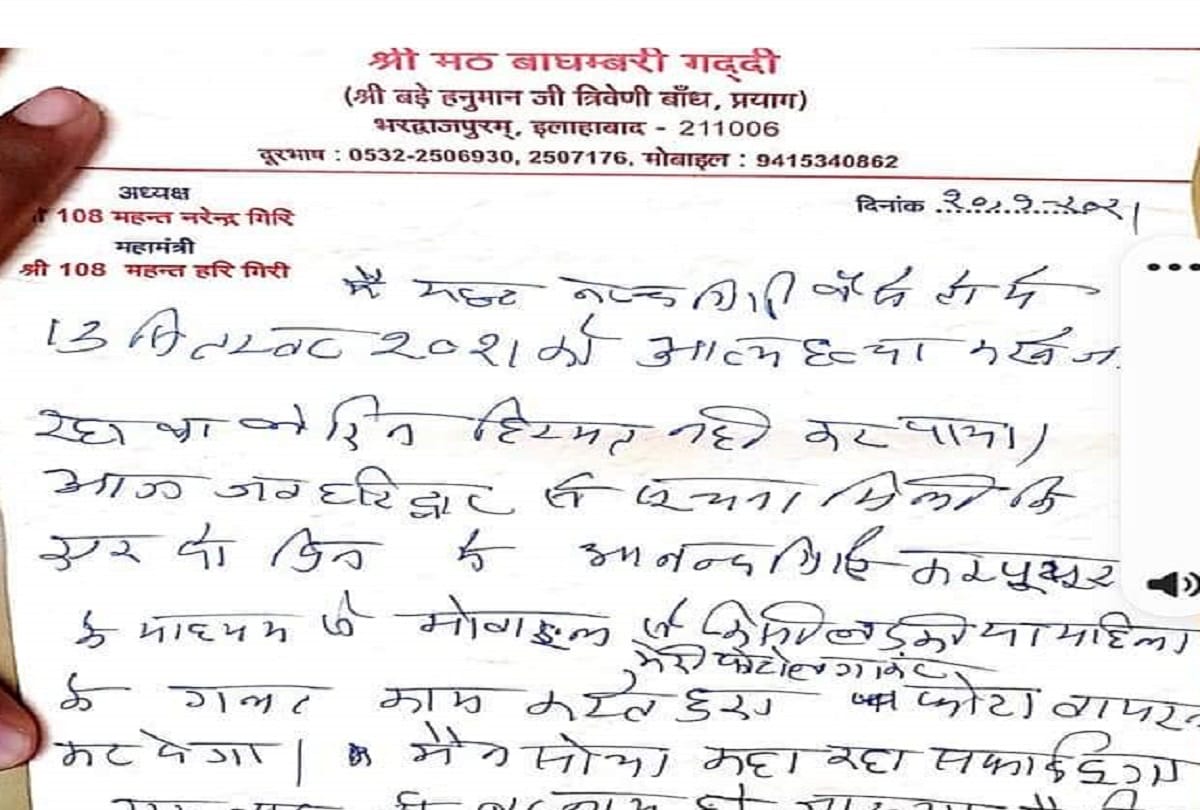 श्री मठ बाघम्बरी गद्दी
(श्री बड़े हनुमान जी त्रिवेणी बाँध, प्रयाग)
भरद्वाजपुरम्, इलाहाबाद - 211006
दूरभाष : 0532-2506930, 2507176, मोबाइल : 9415340862
अध्यक्ष
108 महन्त नरेन्द्र गिरि
महामंत्री
श्री 108 महन्त हरि गिरी
दिनांक
मै महन्त गिरि
13 सितम्बर २०२१ को आत्म हत्या करने जा
रहा था लेकिन हिम्मत नही कर पाया।
आज जब हरिद्वार से सूचना मिली कि
एक दो दिन मे आनन्द गिरि कम्प्यूटर
के माध्यम से मोबाइल से किसी लडकी या महिला
मेरी फोटो लगाकर
के गलत काम करते हुए फोटो वायरल
कर देगा। मैने सोचा कहा सफाई दूंगा